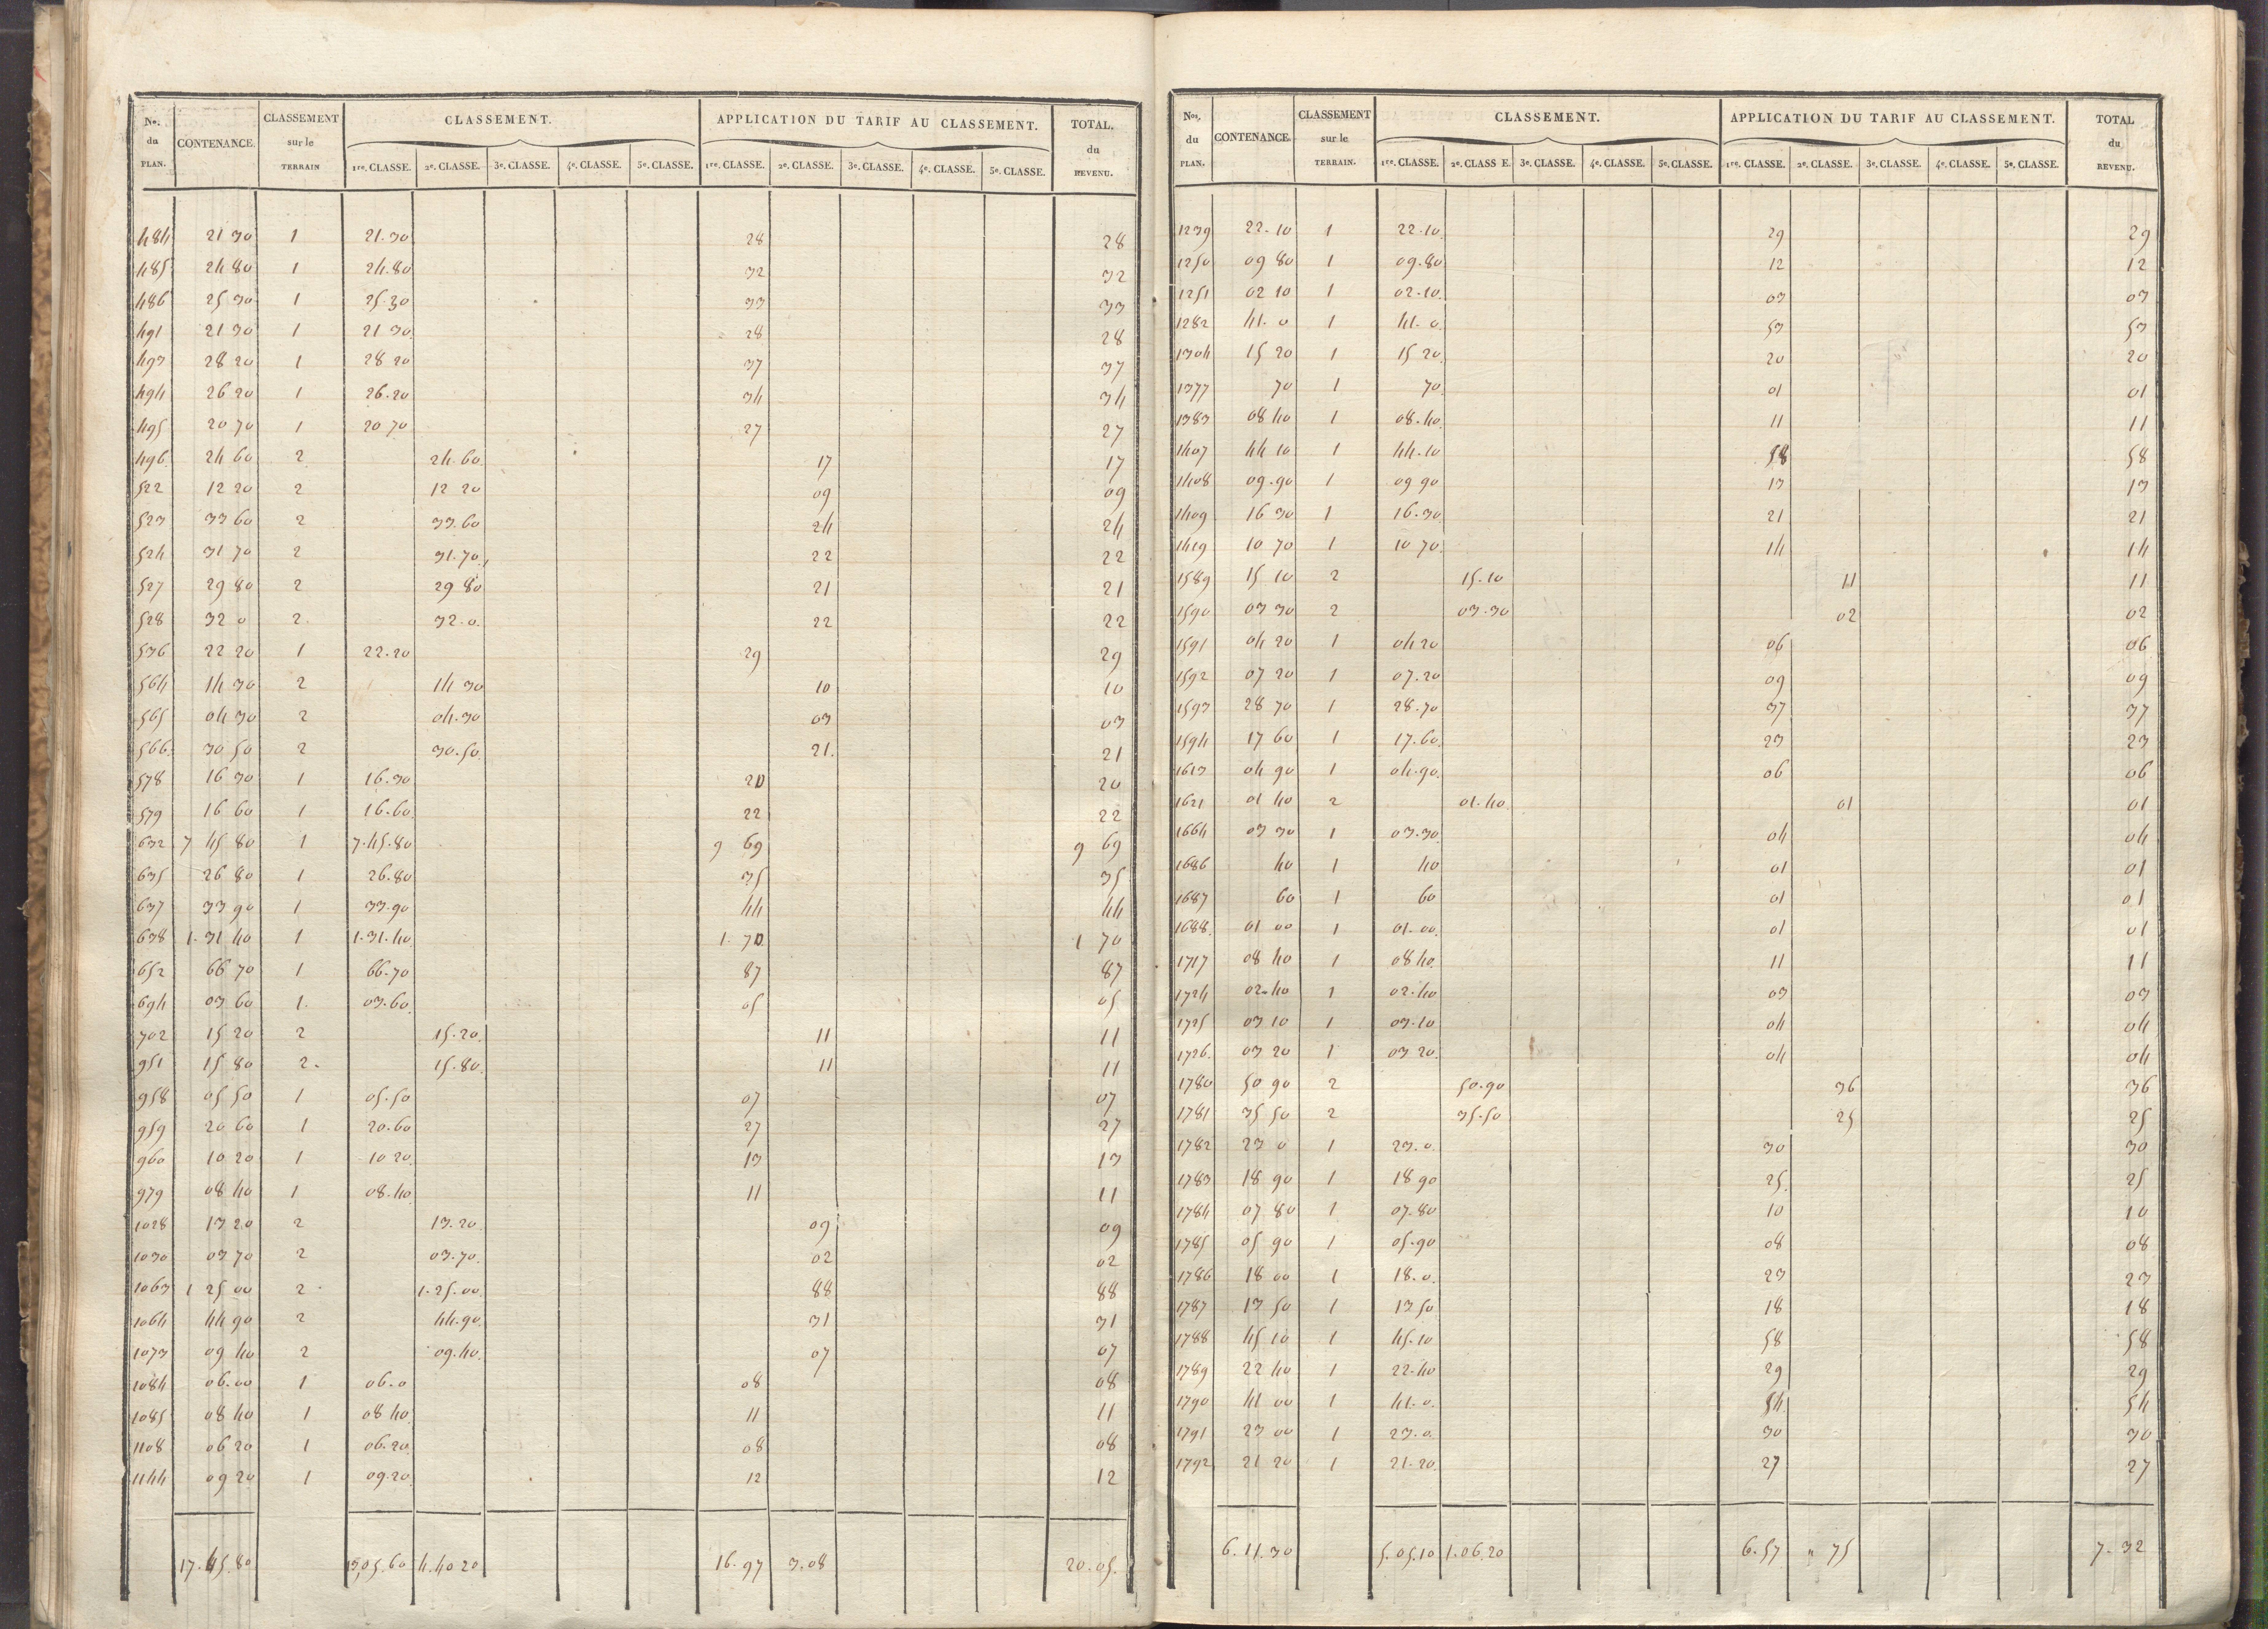 No. du PLAN. CONTENANCE. CLASSEMENT sur le TERRAIN CLASSEMENT. APPLICATION DU TARIF AU CLASSEMENT. TOTAL. du REVENU.
1re. CLASSE. 2e. CLASSE. 3e. CLASSE. 4e. CLASSE. 5e. CLASSE. 1re. CLASSE. 2e. CLASSE. 3e. CLASSE. 4e. CLASSE. 5e. CLASSE.
484 21 30 1 21.30 28 28
485 24 80 1 24.80 32 32
486 25 30 1 25.30 33 33
491 21 30 1 21 30 28 28
493 28 20 1 28 20 37 37
494 26 20 1 26.20 34 34
495 20 70 1 20 70 27 27
496 24 60 2 24.60 17 17
522 12 20 2 12 20 09 09
523 33 60 2 33.60 24 24
524 31 70 2 31.70 22 22
527 29 80 2 29 80 21 21
528 32 0 2 32.0 22 22
536 22 20 1 22.20 29 29
564 14 30 2 14 30 10 10
565 04 30 2 04.30 03 03
566 30 50 2 30.50 21. 21
578 16 30 1 16.30 20 20
579 16 60 1 16.60 22 22
632 7 45 80 1 7.45.80 9 69 9 69
635 26 80 1 26.80 35 35
637 33 90 1 33.90 44 44
638 1.31 40 1 1.31.40 1.70 1 70
652 66 70 1 66.70 87 87
694 03 60 1 03.60 05 05
702 15 20 2 15.20 11 11
951 15 80 2 15.80 11 11
958 05 50 1 05.50 07 07
959 20 60 1 20.60 27 27
960 10 20 1 10 20 13 13
979 08 40 1 08.40 11 11
1028 13 20 2 13.20 09 09
1030 03 70 2 03.70 02 02
1063 1 25 00 2 1.25.00 88 88
1064 44 90 2 44.90 31 31
1073 09 40 2 09.40 07 07
1084 06.00 1 06.0 08 08
1085 08 40 1 08 40 11 11
1108 06 20 1 06.20 08 08
1144 09 20 1 09.20 12 12
17.45.80 13,05.60 4.40 20 16.97 3.08 20.05.
Nos. du PLAN. CONTENANCE. CLASSEMENT sur le TERRAIN. CLASSEMENT. APPLICATION DU TARIF AU CLASSEMENT. TOTAL du REVENU.
1re. CLASSE. 2e. CLASS E. 3e. CLASSE. 4e. CLASSE. 5e. CLASSE. 1re. CLASSE. 2e. CLASSE. 3e. CLASSE. 4e. CLASSE. 5e. CLASSE.
1239 22.10 1 22.10 29 29
1250 09 80 1 09.80 12 12
1251 02 10 1 02.10 03 03
1282 41.0 1 41.0 53 53
1304 15 20 1 15 20 20 20
1377 70 1 70 01 01
1383 08 40 1 08.40 11 11
1407 44 10 1 44.10 58 58
1408 09.90 1 09 90 13 13
1409 16 30 1 16.30 21 21
1419 10 70 1 10 70 14 14
1589 15 10 2 15.10 11 11
1590 03 30 2 03.30 02 02
1591 04 20 1 04 20 06 06
1592 07 20 1 07.20 09 09
1593 28 70 1 28.70 37 37
1594 17 60 1 17.60 23 23
1613 04 90 1 04.90 06 06
1621 01 40 2 01.40 01 01
1664 03 30 1 03.30 04 04
1686 40 1 40 01 01
1687 60 1 60 01 01
1688. 01 00 1 01.00 01 01
1717 08 40 1 08 40 11 11
1724 02.40 1 02.40 03 03
1725 03 10 1 03.10 04 04
1726. 03 20 1 03 20 04 04
1780 50 90 2 50.90 36 36
1781 35 50 2 35.50 25 25
1782 23 0 1 23.0 30 30
1783 18 90 1 18 90 25. 25
1784 07 80 1 07.80 10 10
1785 05 90 1 05.90 08 08
1786 18 00 1 18.0 23 23
1787 13 50 1 13 50 18 18
1788 45 10 1 45.10 58 58
1789 22 40 1 22.40 29 29
1790 41 00 1 41.0 54 54
1791 23 00 1 23.0 30 30
1792 21 20 1 21.20 27 27
6.11.30 5.05.10 1.06.20 6.57 " 75 7.32